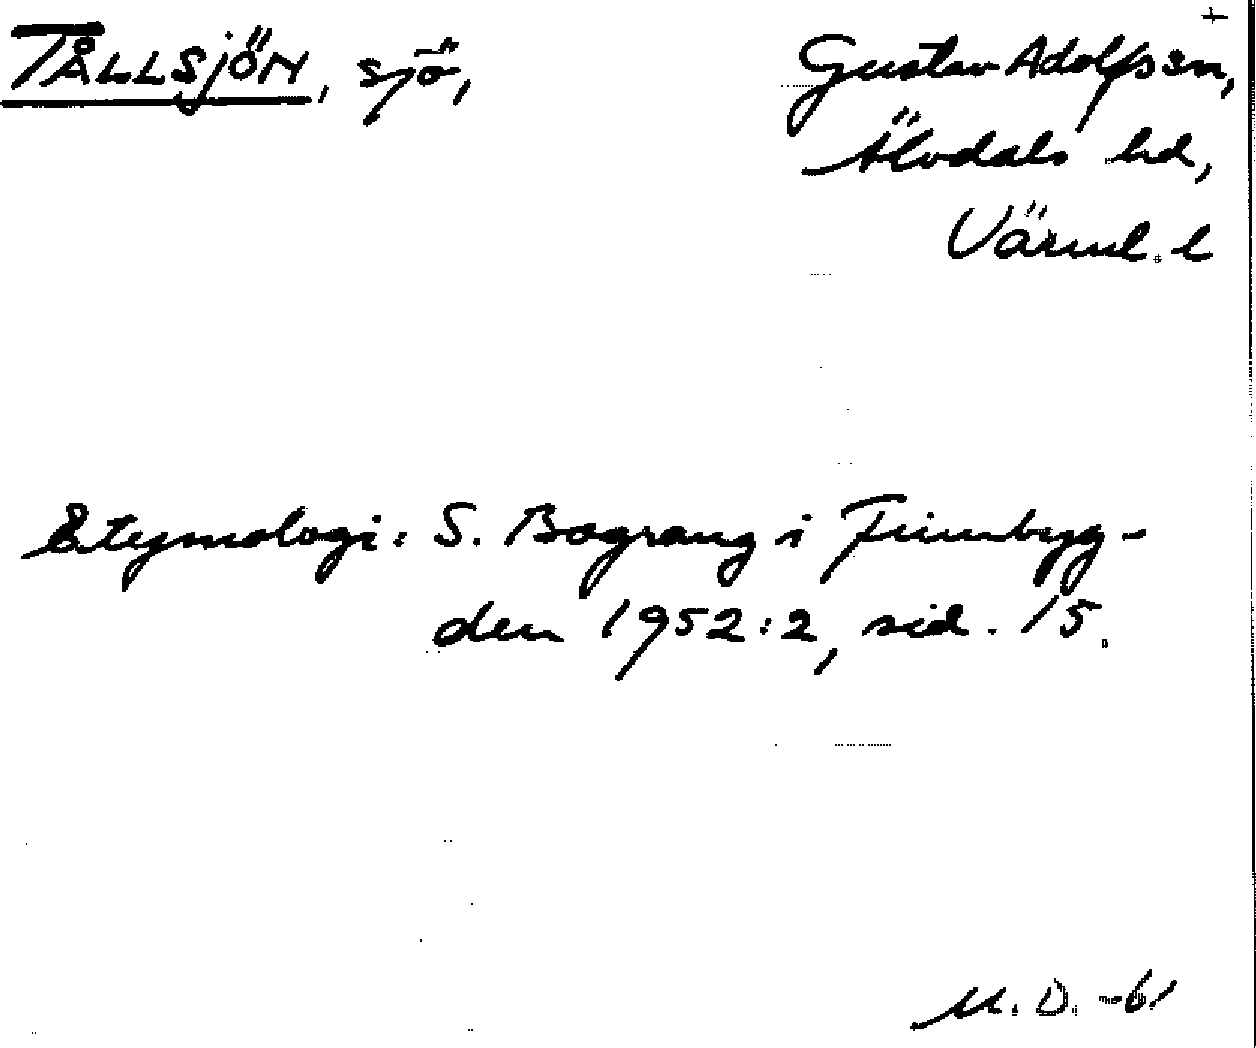 TÅLLSJÖN, sjö,
Gustav Adolfs sn,
Älvdals hd,
Värml. l
Etymologi: S. Bograng i Finnbyg-
den 1952:2, sid. 15.
M. D. -61